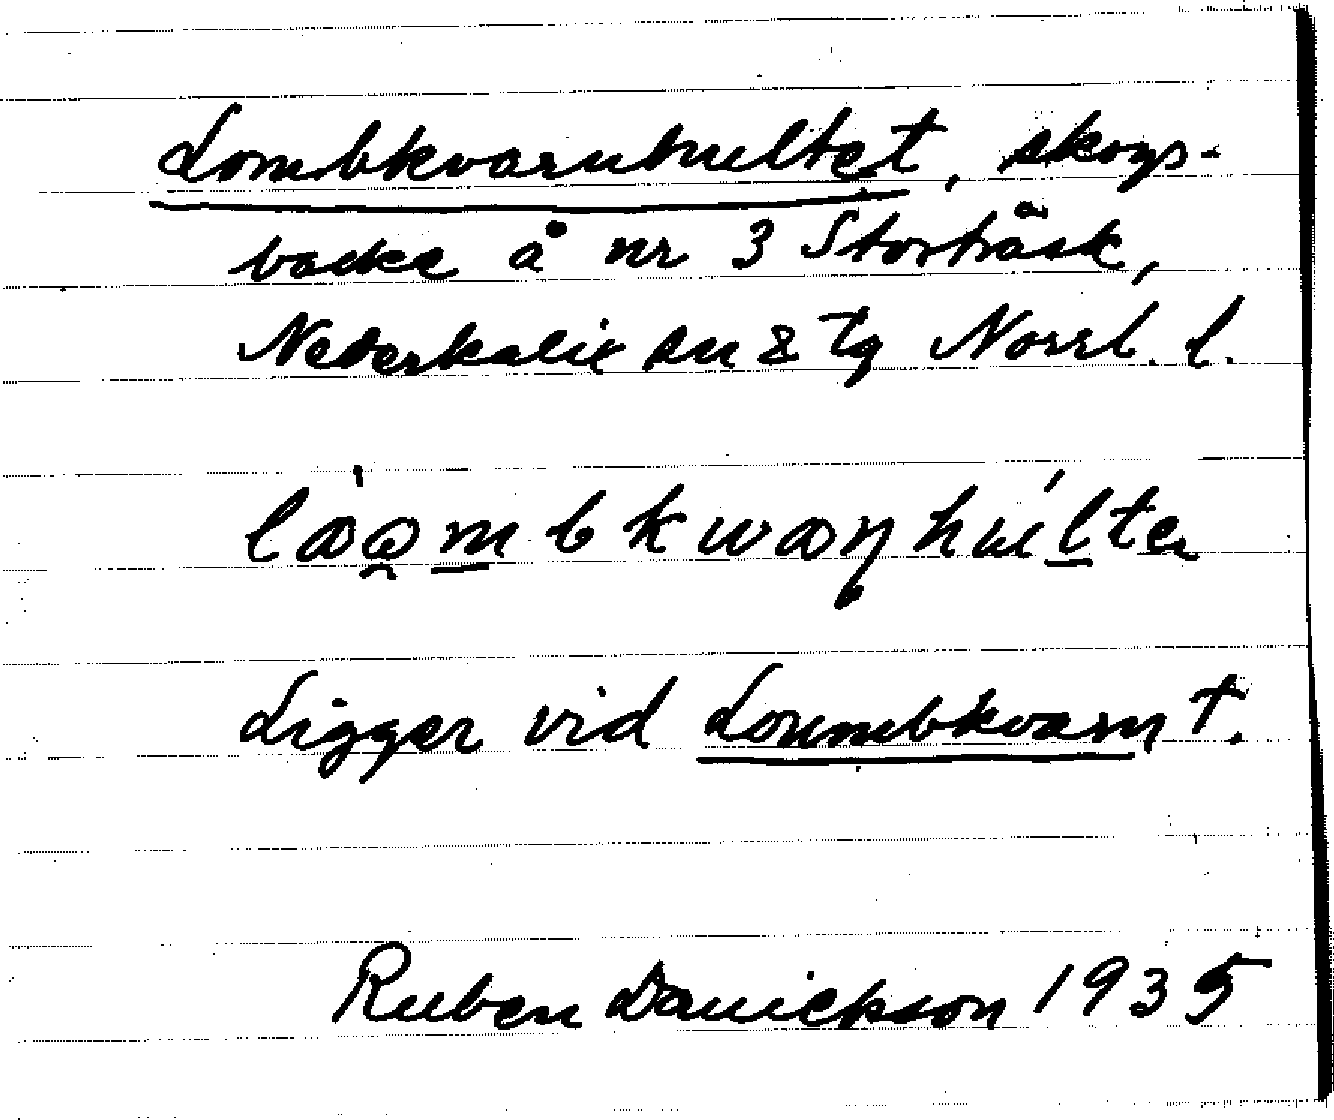 Lombkvarnhultet, skogs-
backe å nr 3 Storträsk,
Nederkalix sn & tg Norrb. l.
Ligger vid Lombkvarn †.
Ruben Danielsson 1935